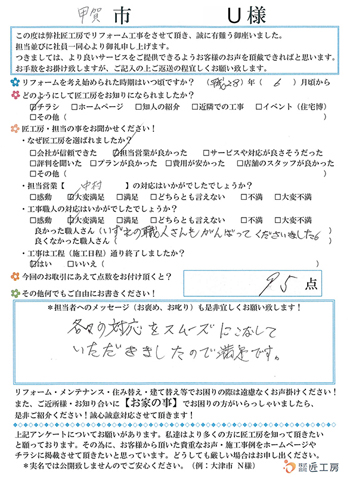 甲賀 市 U 様
この度は弊社匠工房でリフォーム工事をさせて頂き、誠に有難う御座いました。
担当並びに社員一同心より御礼申し上げます。
つきましては、より良いサービスをご提供できるようお客様のお声を頂戴できればと思います。
お手数をお掛け致しますが、ご記入の上ご返送の程宜しくお願い致します。
リフォームを考え始められた時期はいつ頃ですか? (平成28) 年 ( 6 ) 月頃から
どのようにして匠工房をお知りになられましたか?
☑チラシ □ホームページ □知人の紹介 □近隣での工事 □イベント (住宅博)
□その他 ( )
匠工房・担当の事をお聞かせください!
・なぜ匠工房を選ばれましたか?
□会社が信頼できた ☑担当営業が良かった □サービスや対応が良さそうだった
□評判を聞いた □プランが良かった □費用が安かった □店舗のスタッフが良かった
□その他 ( )
・担当営業【 中村 】の対応はいかがでしたでしょうか?
□感動 ☑大変満足 □満足 □どちらとも言えない □不満 □大変不満
・工事職人の対応はいかがでしたでしょうか?
□感動 ☑大変満足 □満足 □どちらとも言えない □不満 □大変不満
良かった職人さん (いずれの職人さんもがんばってくださいました。)
良くなかった職人さん ( )
・工事は工程 (施工日程) 通り終了しましたか?
☑はい □いいえ ( )
今回のお取引にあえて点数をお付け頂くと? 95 点
その他何でもご自由にお書きください!
*担当者へのメッセージ (お褒め、お叱り) も是非宜しくお願い致します!
各々の対応をスムーズにこなして
いただきましたので満足です。
リフォーム・メンテナンス・住み替え・建て替え等でお困りの際は遠慮なくお声掛けください!
また、ご近所様・お知り合いに【お家の事】でお困りの方がいらっしゃいましたら、
是非ご紹介ください!誠心誠意対応させて頂きます!
上記アンケートについてお願いがあります。私達はより多くの方に匠工房を知って頂きたい
と願っております。その為に、お客様から頂いた貴重なお声・施工事例をホームページや
チラシに掲載させて頂きたいと思っています。どうしても厳しい場合はお申し出ください。
*実名では公開致しませんのでご安心ください。(例:大津市 N様)
株式会社 匠工房